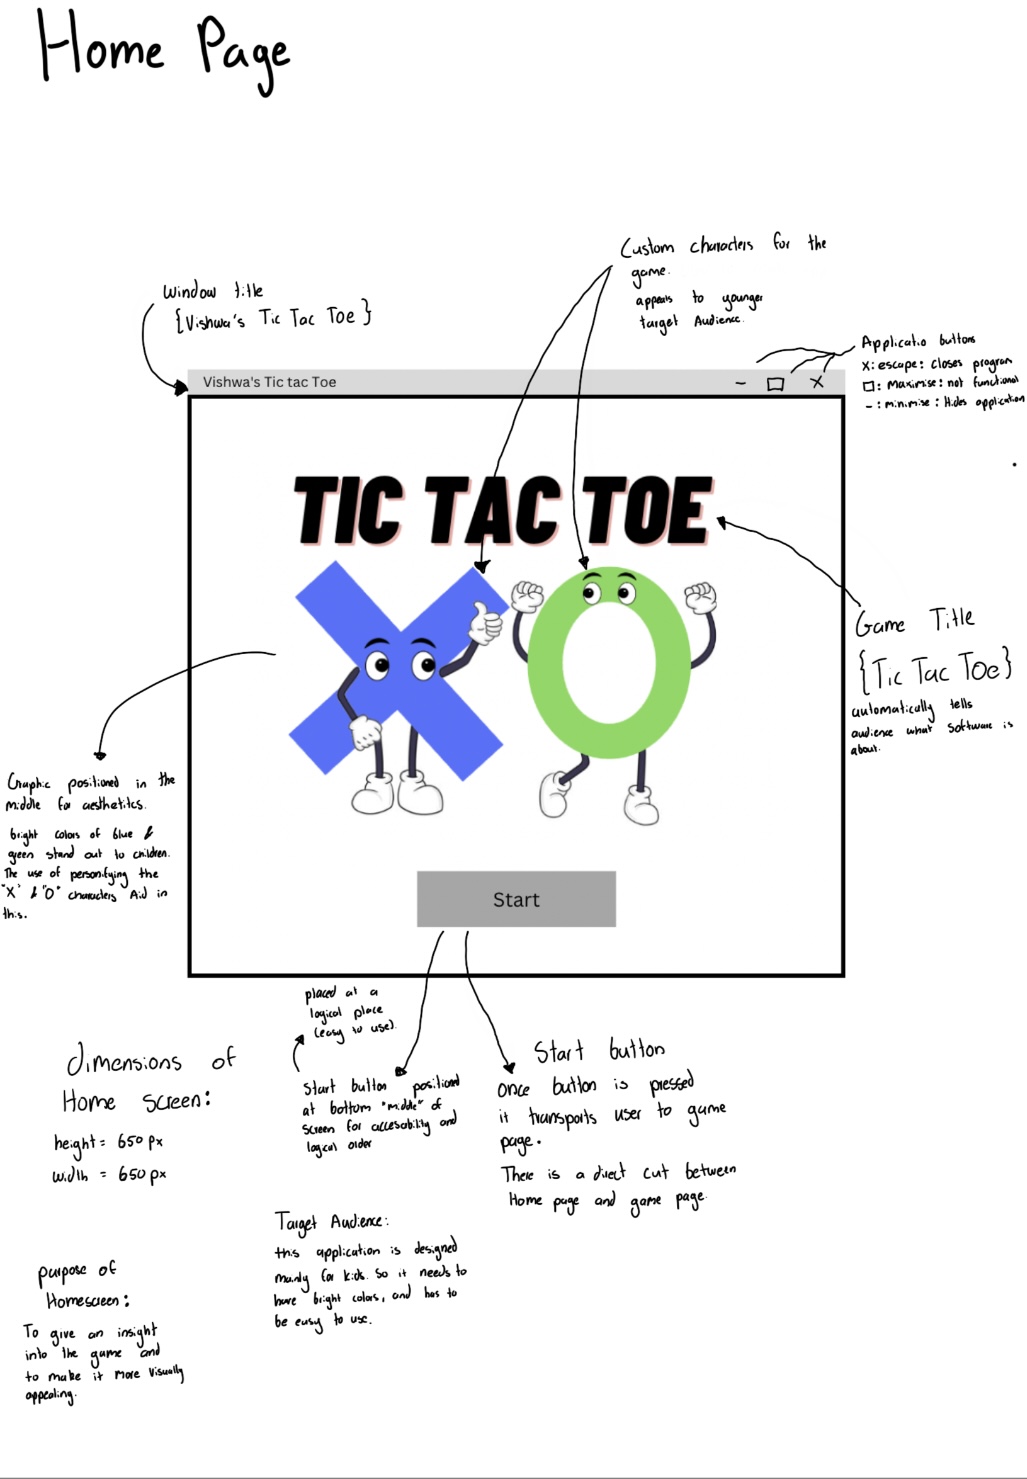 Home Page
Custom characters for the
game.
appeals to younger
target Audience.
Window title
{Vishwa's Tic Tac Toe}
Applicatio buttons
X: escape: closes program
□: Maximise: not functional
-: minimise: Hides application
Vishwa's Tic tac Toe
TIC TAC TOE
Game Title
{Tic Tac Toe}
automatically tells
audience what software is
about.
Graphic positioned in the
middle for aesthetitcs.
bright colors of blue &
green stand out to children.
The use of personifying the
"X" & "O" characters Aid in
this.
Start
placed at a
logical place
(easy to use).
Start button positioned
at bottom "middle" of
screen for accesability and
logical order
Start button
once button is pressed
it transports user to game
page.
There is a direct cut between
Home page and game page.
dimensions of
Home screen:
height = 650 px
width = 650 px
Target Audience:
this application is designed
mainly for kids. So it needs to
have bright colors, and has to
be easy to use.
purpose of
Homescreen:
To give an insight
into the game and
to make it more visually
appealing.